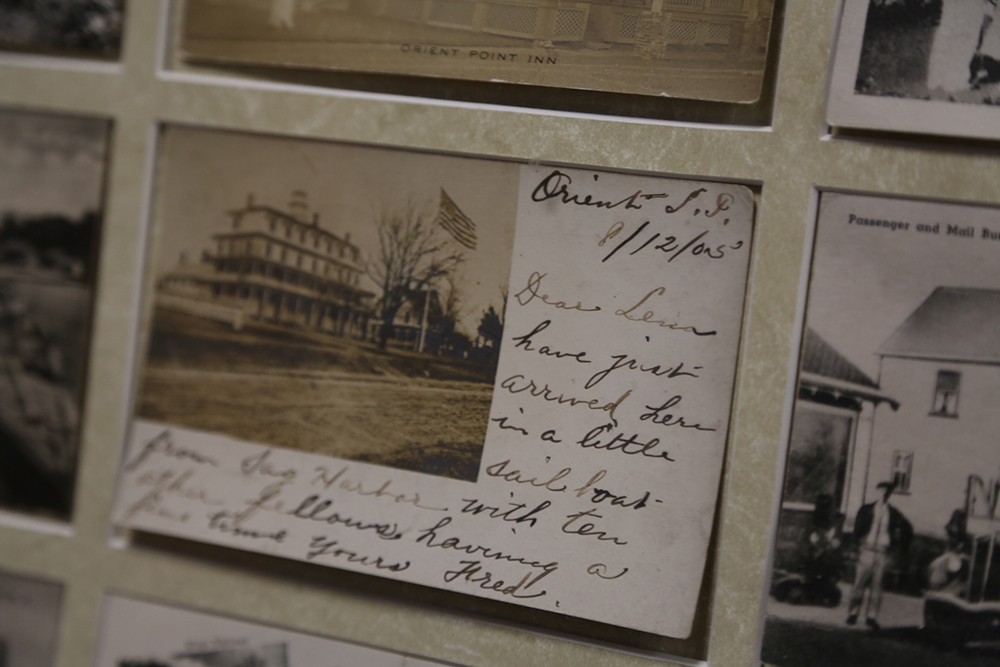 ORIENT POINT INN
Orient L.I.
8/12/05
Dear
have just
arrived here
in a little
sail boat
from Sag Harbor with ten
other fellows, having a
fine time Yours Fred.
Passenger and Mail